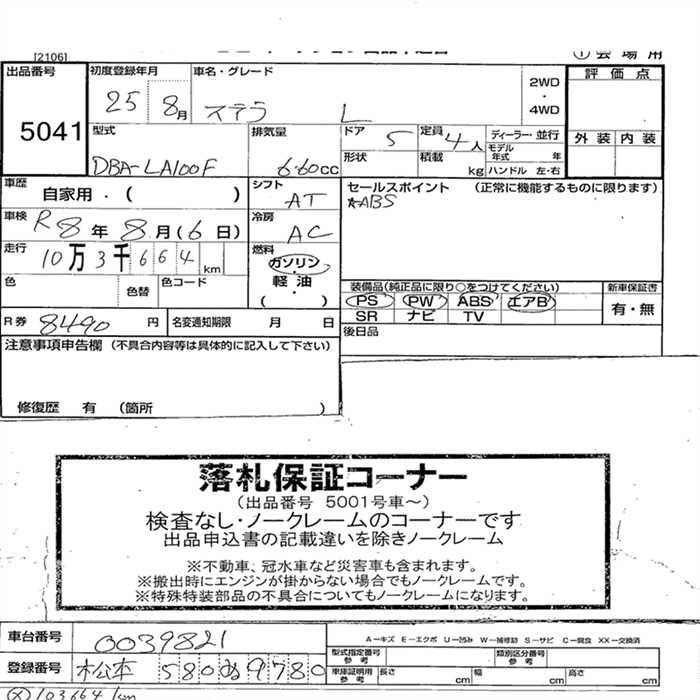 [2106]
① 会 場 用
出品番号
5041
初度登録年月
25 8月
車名・グレード
ステラ L
2WD
・
4WD
評 価 点
外 装 内 装
型式
DBA-LA100F
排気量
660cc
ドア 5
形状
定員 4人
積載 kg
ディーラー・並行
モデル年式 年
ハンドル 左・右
車歴
自家用 ・ ( )
シフト
AT
セールスポイント (正常に機能するものに限ります)
★ABS
車検
R8年 8月(6日)
冷房
AC
走行
10万3千664km
燃料
ガソリン
・
軽 油
( )
色
色替
色コード
装備品(純正品に限り○をつけてください)
PS PW ABS エアB
SR ナビ TV
新車保証書
有・無
R券 8490 円
名変通知期限 月 日
後日品
注意事項申告欄 (不具合内容等は具体的に記入して下さい)
修復歴 有 (箇所 )
落札保証コーナー
(出品番号 5001号車～)
検査なし・ノークレームのコーナーです
出品申込書の記載違いを除きノークレーム
※不動車、冠水車など災害車も含まれます。
※搬出時にエンジンが掛からない場合でもノークレームです。
※特殊特装部品の不具合についてもノークレームになります。
車台番号 0039821
A－キズ E－エクボ U－凹み W－補修跡 S－サビ C－腐食 XX－交換済
登録番号 松本 580 ぬ 9780
型式指定番号
参考
類別区分番号
参考
車庫証明用
参考
長さ cm 幅 cm 高さ cm
(メ)103664km